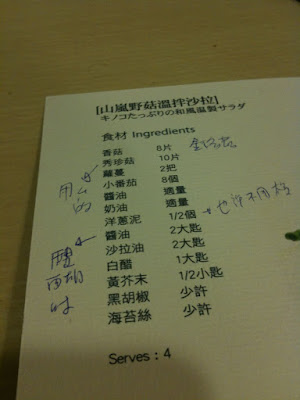 [山嵐野菇溫拌沙拉]
キノコたっぷりの和風温製サラダ
食材 Ingredients
香菇 8片
秀珍菇 10片
蘿蔓 2把
小番茄 8個
醬油 適量
奶油 適量
洋蔥泥 1/2個
醬油 2大匙
沙拉油 2大匙
白醋 1大匙
黃芥末 1/2小匙
黑胡椒 少許
海苔絲 少許
Serves：4